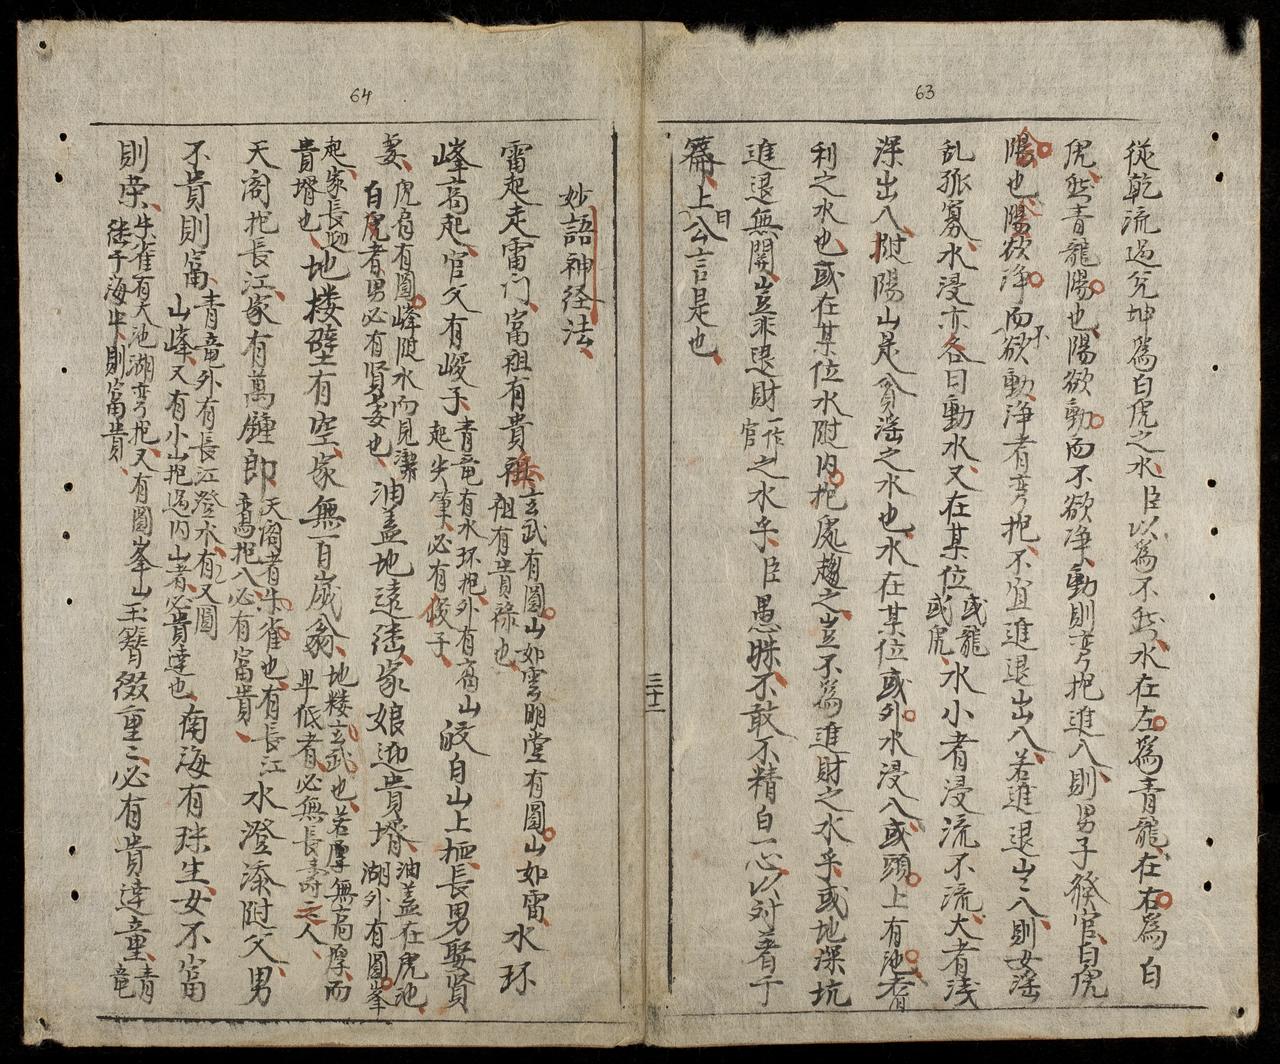 63
從乾流過兌坤為白虎之水臣以為不然水在左為青龍在右為白
虎然青龍陽也陽欲動而不欲净動則弯抱進入則男子發官白虎
陰也陽欲净而不欲動净者弯抱不宜進退出入若進退出入則女滛
乱孤寡水浸亦各曰動水又在某位或龍或虎水小者浸流不流大者浅
深出入附陽山是貪滛之水也水在某位或外水浸入或頭上有池者
利之水也或在某位水附内抱處趨之豈不為進財之水乎或地深坑
進退無開豈非退財一作官之水乎臣愚昧不敢不精白一心以对著于
篇上曰公言是也
三十二
64
妙語神経法
雷起走雷门富祖有貴祖玄武有圓山如雲明堂有圓山如雷祖有貴祿也水环
峰高起官父有峻子青竜有水环抱外有高山起尖筆必有俊子皎白山上抠長男娶賢
妻虎肩有圓峰附水而見潔白虎者男必有賢妻也油盖地遠徒家娘迎貴壻油盖在虎池湖外有圓峯
起家長迎貴壻也地楼壁有空家無百歲翁地楼玄武也若厚無高厚而卑低者必無長壽之人
天阁抱長江家有萬鍾郎天阁者朱雀也有長江弯抱入必有富貴水澄漆附父男
不貴則富青竜外有長江澄水有又圓山峰又有小山抱過内山者必貴達也南海有珠生女不富
則荣朱雀有大池湖弯抱又有圓峯山徒于海中則富貴玉簪缀重〻必有貴達童青竜